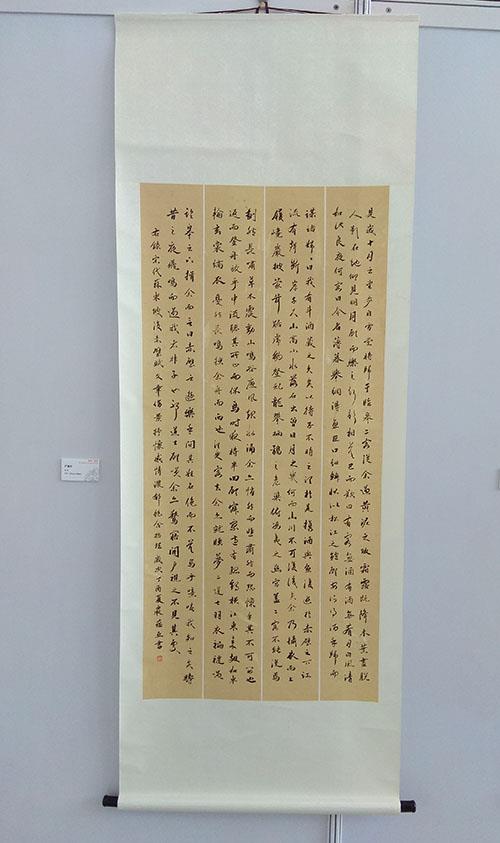 是歲十月之望步自雪堂將歸于臨皋二客從余過黄泥之坂霜露既降木葉盡脱
人影在地仰見明月顧而樂之行歌相答已而歎曰有客無酒有酒無肴月白風清
如此良夜何客曰今者薄暮舉網得魚巨口細鱗狀似松江之鱸顧安所得酒乎歸而
謀諸婦婦曰我有斗酒藏之久矣以待子不時之須於是攜酒與魚復遊於赤壁之下江
流有聲斷岸千尺山高月小水落石出曾日月之幾何而江山不可復識矣余乃攝衣而上
履巉巖披蒙茸踞虎豹登虬龍攀栖鶻之危巢俯馮夷之幽宫蓋二客不能從焉
劃然長嘯草木震動山鳴谷應風起水涌余亦悄然而悲肅然而恐懍乎其不可留也
返而登舟放乎中流聽其所止而休焉時夜將半四顧寂寥適有孤鶴横江東來翅如車
輪玄裳縞衣戛然長鳴掠余舟而西也須臾客去余亦就睡夢一道士羽衣蹁躚過
臨皋之下揖余而言曰赤壁之遊樂乎問其姓名俛而不答嗚呼噫嘻我知之矣疇
昔之夜飛鳴而過我者非子也耶道士顧笑余亦驚寤開户視之不見其處
右錄宋代蘇東坡後赤壁賦文章借景抒懷感情深歲次丁酉夏嚴書